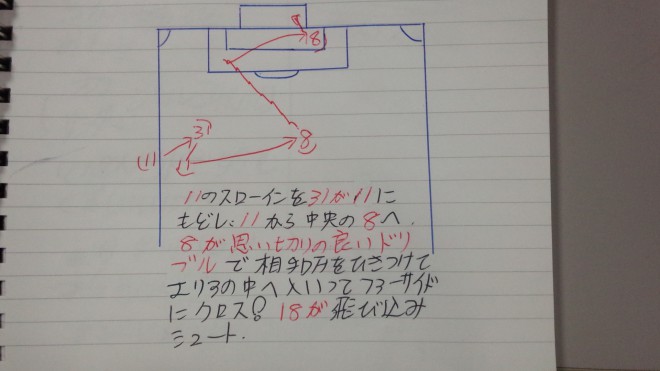 8
31
11
8
11のスローインを31が11に
もどし、11から中央の8へ.
8が思い切りの良いドリ
ブルで相手DFをひきつけて
エリアの中へ入いってファーサイド
にクロス! 18が飛び込み
シュート.